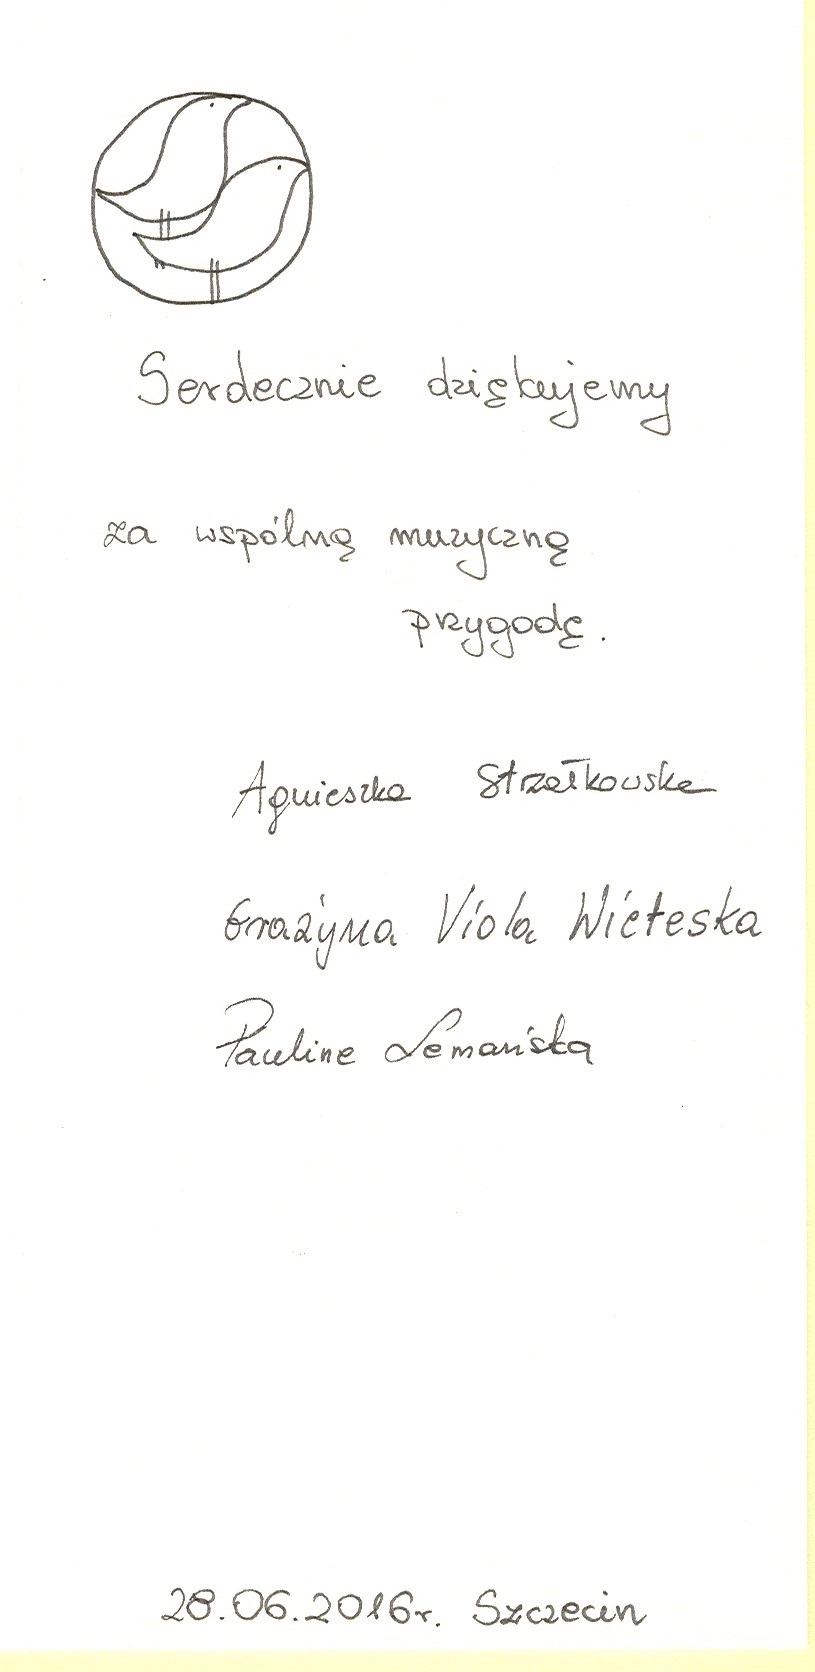 Serdecznie dziękujemy
za wspólną muzyczną
przygodę.
Agnieszka Strzałkowska
Grażyna Viola Wieteska
Paulina Lemańska
28.06.2016r. Szczecin